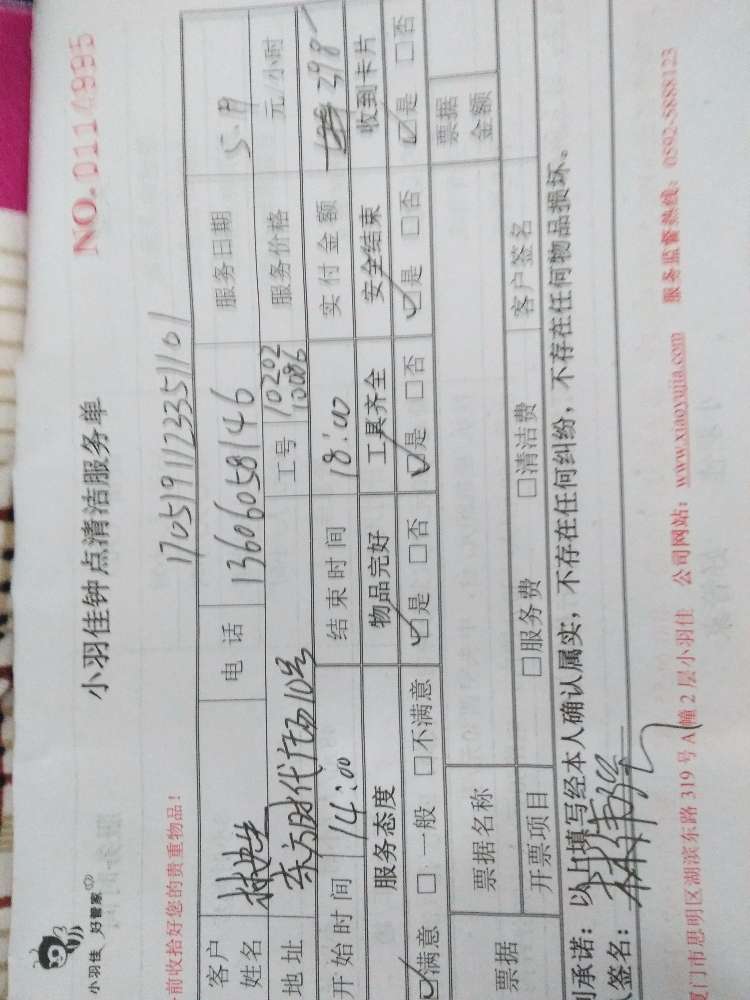 小羽佳 好管家
小羽佳钟点清洁服务单
NO.0114995
前收拾好您的贵重物品！
1705191123351101
客户姓名 林先生 电话 13606058146 服务日期 5.19
地址 东方时代广场10号 工号 10202 10086 服务价格 元/小时
开始时间 14:00 结束时间 18:00 实付金额 298
服务态度 物品完好 工具齐全 安全结束 收到卡片
☑满意 □一般 □不满意 ☑是 □否 ☑是 □否 ☑是 □否 ☑是 □否
票据 票据名称 票据金额
开票项目 □服务费 □清洁费 客户签名
承诺：以上填写经本人确认属实，不存在任何纠纷，不存在任何物品损坏。
签名：
厦门市思明区湖滨东路 319 号 A 幢 2 层小羽佳 公司网站：www.xiaoyujia.com 服务监督热线：0592-5888123